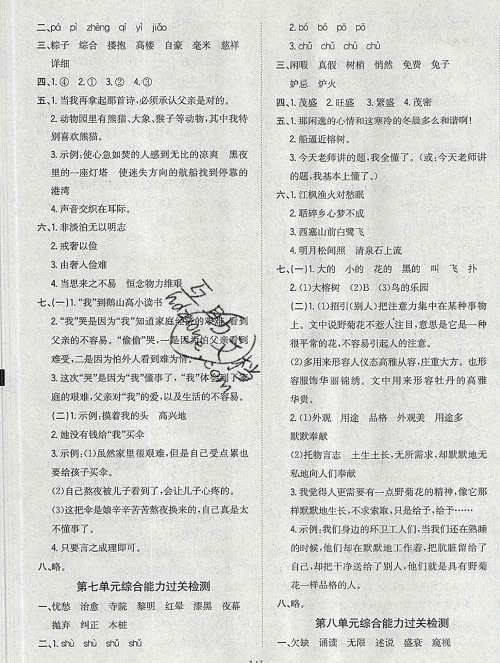 二、pá pī zhēng qī yǐ jiǎo
三、粽子 综合 搂抱 高楼 自豪 毫米 慈祥
详细
四、1.④ 2.① 3.② 4.③
五、1.当我再拿起那首诗，必须承认父亲是对的。
2.动物园里有熊猫、大象、猴子等动物，其中我特
别喜欢熊猫。
3.示例：使心急如焚的人感到无比的凉爽 黑夜
里的一座灯塔 使迷失方向的航船找到停靠的
港湾
4.声音交织在耳际。
六、1.非淡泊无以明志
2.戒奢以俭
3.由奢入俭难
4.当思来之不易 恒念物力维艰
七、(一)1.“我”到鹅山高小读书
2.“我”哭是因为“我”知道家庭经济的艰难，看到
父亲的不容易。“偷偷”哭，一是因为怕父亲看到
难受，二是因为怕外人看到难为情。
3.这次“哭”是因为“我”懂事了，“我”体会到了家
庭的艰难，父亲对“我”的爱，以及生活的不容易。
(二)1.示例：摸着我的头 高兴地
2.她没有钱给“我”买伞
3.示例：(1)虽然家里很艰难，但是自己受点累也
要给孩子买伞。
(2)自己熬夜被儿子看到了，会让儿子心疼的。
(3)这把伞是娘辛辛苦苦熬夜换来的，自己真是太
不懂事了。
4.只要言之成理即可。
八、略。
第七单元综合能力过关检测
一、忧愁 治愈 寺院 黎明 红晕 漆黑 夜幕
抛弃 纠正 木桩
二、1.shù shǔ shū shǔ
2.bó bó pō pō
3.chū chǔ chǔ chù
三、闲暇 真假 树梢 悄然 免费 兔子
妒忌 炉火
四、1.茂盛 2.旺盛 3.繁盛 4.茂密
五、1.那闲逸的心情和这寒冷的冬晨多么和谐啊！
2.船逼近榕树。
3.今天老师讲的题，我全懂了。(或：今天老师讲
的题，我基本上懂了。)
六、1.江枫渔火对愁眠
2.聒碎乡心梦不成
3.西塞山前白鹭飞
4.明月松间照 清泉石上流
七、(一)1.大的 小的 花的 黑的 叫 飞 扑
2.(1)大榕树 (2)B (3)鸟的乐园
(二)1.招引(别人)把注意力集中在某种事物
上。文中说野菊花不惹人注目，意思是它是一种
很平常的花，不容易引起人们的注意。
(2)多用来形容人仪态高雅从容，庄重大方。也形
容服饰华丽锦绣。文中用来形容牡丹的高雅
华贵。
2.(1)外观 用途 品格 外观美 用途多
默默奉献
(2)托物言志 土生土长，无求无所求，却默默地无
私地向人们奉献着。
3.我觉得人更需要有一点野菊花的精神，像它那
样默默地生长，不求索取，只是给予，给予……
4.示例：我们身边的环卫工人们，当我们还在熟睡
的时候，他们却在默默地工作着，把肮脏留给了
自己，却把干净送给了别人，他们就是具有野菊
花一样品格的人。
八、略。
第八单元综合能力过关检测
一、欠缺 诵读 无限 述说 盛宴 威震